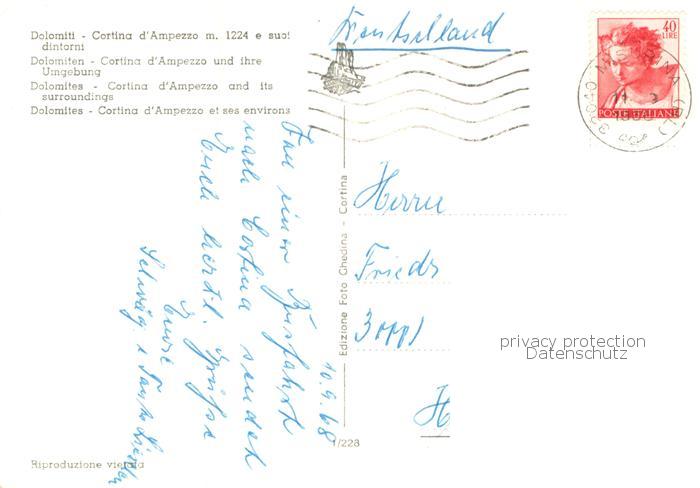 Dolomiti - Cortina d'Ampezzo m. 1224 e suoi
dintorni
Dolomiten - Cortina d'Ampezzo und ihre
Umgebung
Dolomites - Cortina d'Ampezzo and its
surroundings
Dolomites - Cortina d'Ampezzo et ses environs
Deutschland
40
LIRE
POSTE ITALIANE
10.9.68
Von einer Busfahrt
nach Cortina sendet
Euch herzl. Grüße
Eure
Schwäg. & Tante
Edizione Foto Ghedina - Cortina
Herrn
Frieder
H
privacy protection
Datenschutz
1/228
Riproduzione vietata